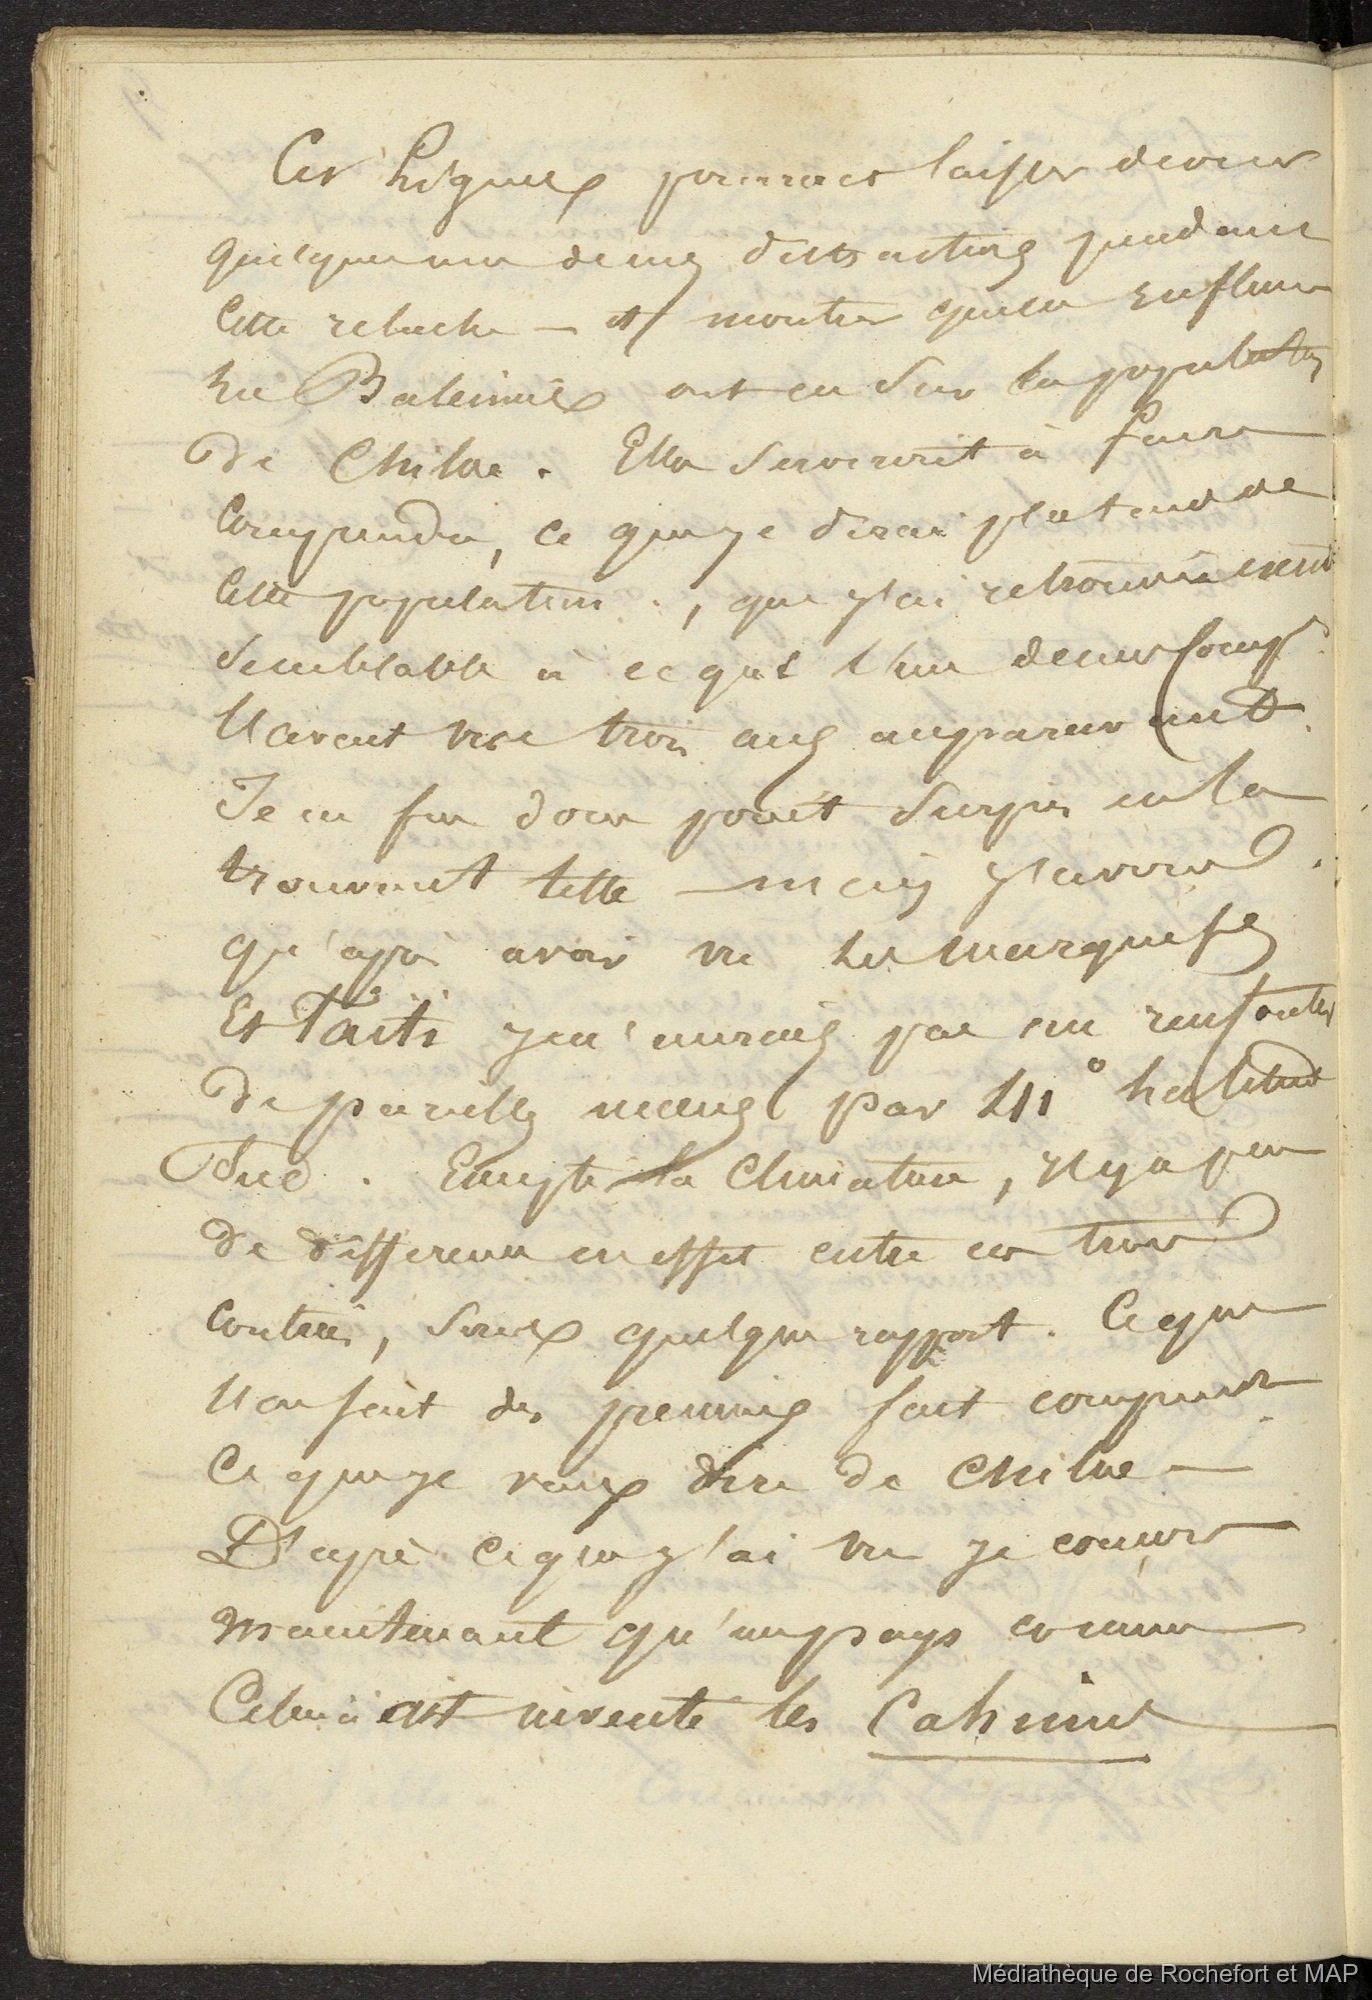 Ces lignes pourront laisser deviner
quelques unes de mes distractions pendant
cette relache — et montrer quelle influence
les Baleiniers ont eu sur la population
de Chiloe. Elles serviront à faire
comprendre, ce que je dirai plus tard de
cette population, que j'ai retrouvée
semblable à ce qu'elle
trois ans auparavant.
Je ne fus donc point surpris en la
trouvant telle — mais j'avoue
qu'après avoir vu les Marquises
Et Taïti je n'aurais pas cru
de pareilles mœurs par 41° latitude
Sud. Excepté la
de différence en effet entre ces trois
contrées, sous quelque rapport. Ce que
l'on sait des premiers fait comprendre
Ce que je veux dire de Chiloe —
D'après ce que j'ai vu je conçois
maintenant qu'un pays comme
Celui-ci ait inventé les
Médiathèque de Rochefort et MAP